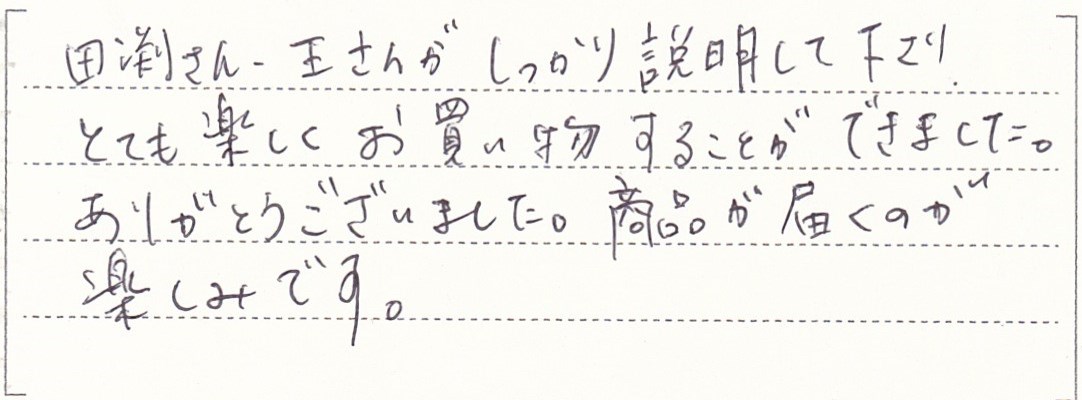 田渕さん、王さんがしっかり説明して下さり、
とても楽しくお買い物することができました。
ありがとうございました。商品が届くのが
楽しみです。